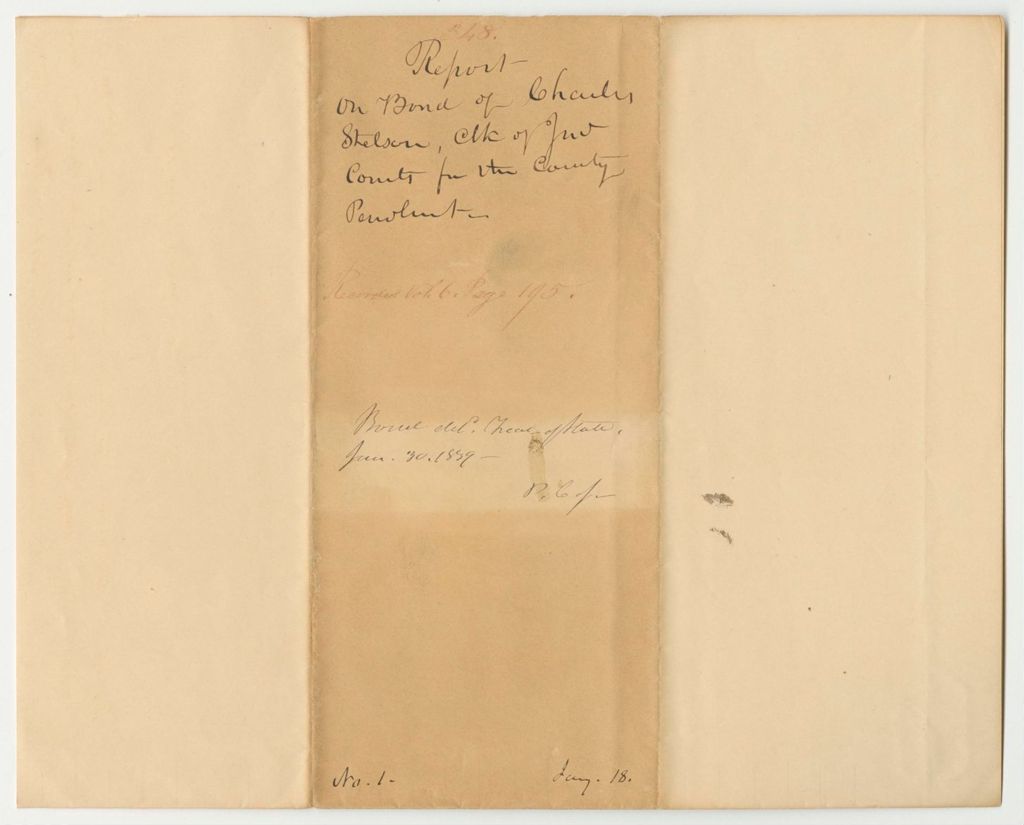 48.
Report
on Bond of Charles
Stetson, Clk of Jud
Courts for the County
Penobscot
Recorded Vol. 6. Page 195.
Bond del. Treas. of State.
Jan. 30. 1839 –
P. C. J–
No. 1 –
Jany. 18.